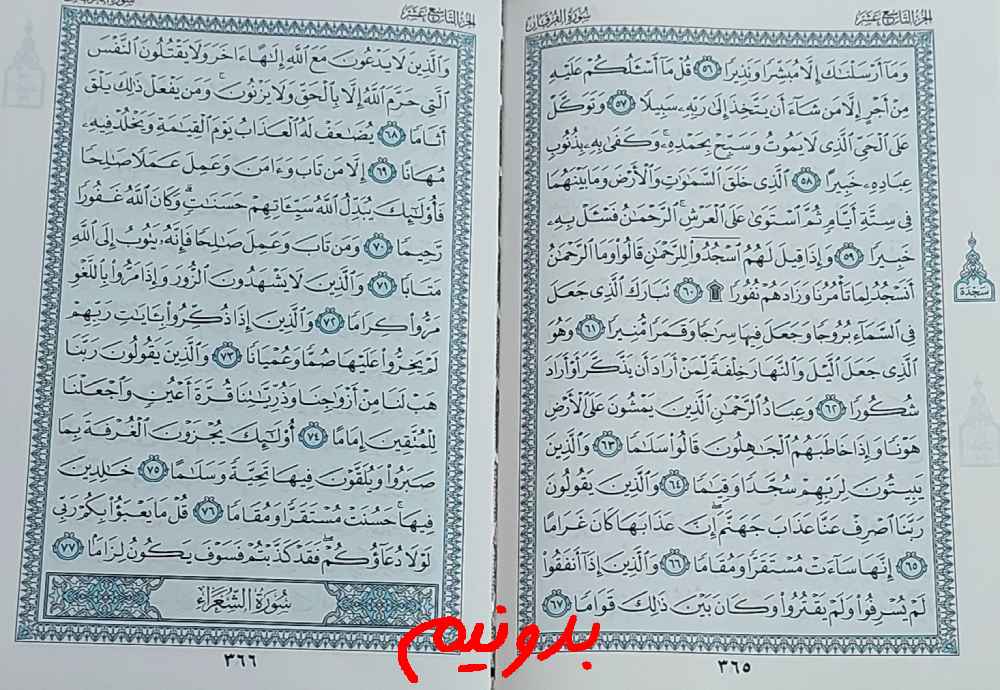 الجزء التاسع عشر
سورة الفرقان
وَمَآ أَرۡسَلۡنَٰكَ إِلَّا مُبَشِّرٗا وَنَذِيرٗا ٥٦ قُلۡ مَآ أَسۡـَٔلُكُمۡ عَلَيۡهِ
مِنۡ أَجۡرٍ إِلَّا مَن شَآءَ أَن يَتَّخِذَ إِلَىٰ رَبِّهِۦ سَبِيلٗا ٥٧ وَتَوَكَّلۡ
عَلَى ٱلۡحَيِّ ٱلَّذِي لَا يَمُوتُ وَسَبِّحۡ بِحَمۡدِهِۦۚ وَكَفَىٰ بِهِۦ بِذُنُوبِ
عِبَادِهِۦ خَبِيرًا ٥٨ ٱلَّذِي خَلَقَ ٱلسَّمَٰوَٰتِ وَٱلۡأَرۡضَ وَمَا بَيۡنَهُمَا
فِي سِتَّةِ أَيَّامٖ ثُمَّ ٱسۡتَوَىٰ عَلَى ٱلۡعَرۡشِۚ ٱلرَّحۡمَٰنُ فَسۡـَٔلۡ بِهِۦ
خَبِيرٗا ٥٩ وَإِذَا قِيلَ لَهُمُ ٱسۡجُدُواْ لِلرَّحۡمَٰنِ قَالُواْ وَمَا ٱلرَّحۡمَٰنُ
أَنَسۡجُدُ لِمَا تَأۡمُرُنَا وَزَادَهُمۡ نُفُورٗا ۩ ٦٠ تَبَارَكَ ٱلَّذِي جَعَلَ
فِي ٱلسَّمَآءِ بُرُوجٗا وَجَعَلَ فِيهَا سِرَٰجٗا وَقَمَرٗا مُّنِيرٗا ٦١ وَهُوَ
ٱلَّذِي جَعَلَ ٱلَّيۡلَ وَٱلنَّهَارَ خِلۡفَةٗ لِّمَنۡ أَرَادَ أَن يَذَّكَّرَ أَوۡ أَرَادَ
شُكُورٗا ٦٢ وَعِبَادُ ٱلرَّحۡمَٰنِ ٱلَّذِينَ يَمۡشُونَ عَلَى ٱلۡأَرۡضِ
هَوۡنٗا وَإِذَا خَاطَبَهُمُ ٱلۡجَٰهِلُونَ قَالُواْ سَلَٰمٗا ٦٣ وَٱلَّذِينَ
يَبِيتُونَ لِرَبِّهِمۡ سُجَّدٗا وَقِيَٰمٗا ٦٤ وَٱلَّذِينَ يَقُولُونَ
رَبَّنَا ٱصۡرِفۡ عَنَّا عَذَابَ جَهَنَّمَۖ إِنَّ عَذَابَهَا كَانَ غَرَامًا
٦٥ إِنَّهَا سَآءَتۡ مُسۡتَقَرّٗا وَمُقَامٗا ٦٦ وَٱلَّذِينَ إِذَآ أَنفَقُواْ
لَمۡ يُسۡرِفُواْ وَلَمۡ يَقۡتُرُواْ وَكَانَ بَيۡنَ ذَٰلِكَ قَوَامٗا ٦٧
سجدة
٣٦٥
الجزء التاسع عشر
وَٱلَّذِينَ لَا يَدۡعُونَ مَعَ ٱللَّهِ إِلَٰهًا ءَاخَرَ وَلَا يَقۡتُلُونَ ٱلنَّفۡسَ
ٱلَّتِي حَرَّمَ ٱللَّهُ إِلَّا بِٱلۡحَقِّ وَلَا يَزۡنُونَۚ وَمَن يَفۡعَلۡ ذَٰلِكَ يَلۡقَ
أَثَامٗا ٦٨ يُضَٰعَفۡ لَهُ ٱلۡعَذَابُ يَوۡمَ ٱلۡقِيَٰمَةِ وَيَخۡلُدۡ فِيهِۦ
مُهَانًا ٦٩ إِلَّا مَن تَابَ وَءَامَنَ وَعَمِلَ عَمَلٗا صَٰلِحٗا
فَأُوْلَٰٓئِكَ يُبَدِّلُ ٱللَّهُ سَيِّـَٔاتِهِمۡ حَسَنَٰتٖۗ وَكَانَ ٱللَّهُ غَفُورٗا
رَّحِيمٗا ٧٠ وَمَن تَابَ وَعَمِلَ صَٰلِحٗا فَإِنَّهُۥ يَتُوبُ إِلَى ٱللَّهِ
مَتَابٗا ٧١ وَٱلَّذِينَ لَا يَشۡهَدُونَ ٱلزُّورَ وَإِذَا مَرُّواْ بِٱللَّغۡوِ
مَرُّواْ كِرَامٗا ٧٢ وَٱلَّذِينَ إِذَا ذُكِّرُواْ بِـَٔايَٰتِ رَبِّهِمۡ
لَمۡ يَخِرُّواْ عَلَيۡهَا صُمّٗا وَعُمۡيَانٗا ٧٣ وَٱلَّذِينَ يَقُولُونَ رَبَّنَا
هَبۡ لَنَا مِنۡ أَزۡوَٰجِنَا وَذُرِّيَّٰتِنَا قُرَّةَ أَعۡيُنٖ وَٱجۡعَلۡنَا
لِلۡمُتَّقِينَ إِمَامًا ٧٤ أُوْلَٰٓئِكَ يُجۡزَوۡنَ ٱلۡغُرۡفَةَ بِمَا
صَبَرُواْ وَيُلَقَّوۡنَ فِيهَا تَحِيَّةٗ وَسَلَٰمًا ٧٥ خَٰلِدِينَ
فِيهَاۚ حَسُنَتۡ مُسۡتَقَرّٗا وَمُقَامٗا ٧٦ قُلۡ مَا يَعۡبَؤُاْ بِكُمۡ رَبِّي
لَوۡلَا دُعَآؤُكُمۡۖ فَقَدۡ كَذَّبۡتُمۡ فَسَوۡفَ يَكُونُ لِزَامَۢا ٧٧
سورة الشعراء
٣٦٦
بدونیم